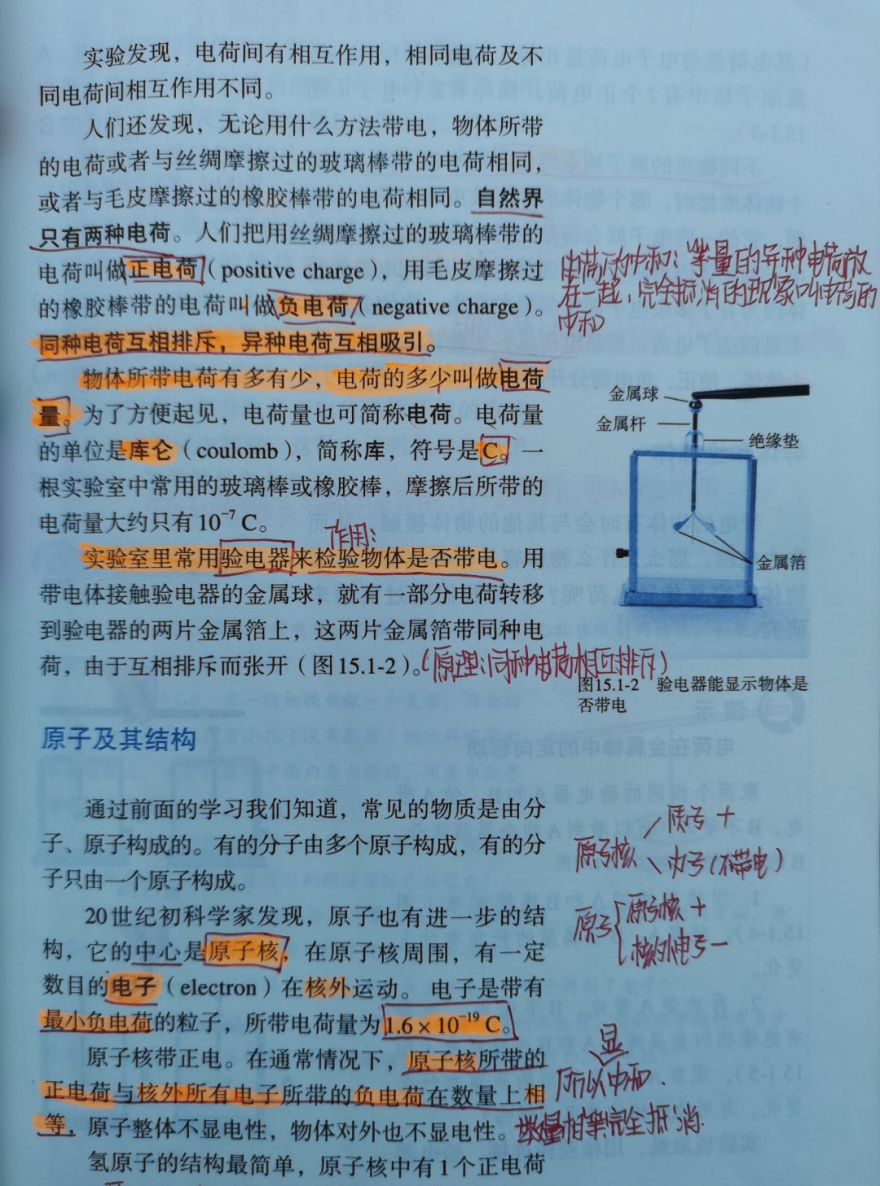 实验发现，电荷间有相互作用，相同电荷及不
同电荷间相互作用不同。
人们还发现，无论用什么方法带电，物体所带
的电荷或者与丝绸摩擦过的玻璃棒带的电荷相同，
或者与毛皮摩擦过的橡胶棒带的电荷相同。自然界
只有两种电荷。人们把用丝绸摩擦过的玻璃棒带的
电荷叫做正电荷（positive charge），用毛皮摩擦过
的橡胶棒带的电荷叫做负电荷（negative charge）。
同种电荷互相排斥，异种电荷互相吸引。
物体所带电荷有多有少，电荷的多少叫做电荷
量。为了方便起见，电荷量也可简称电荷。电荷量
的单位是库仑（coulomb），简称库，符号是C。一
根实验室中常用的玻璃棒或橡胶棒，摩擦后所带的
电荷量大约只有10⁻⁷ C。
作用：
实验室里常用验电器来检验物体是否带电。用
带电体接触验电器的金属球，就有一部分电荷转移
到验电器的两片金属箔上，这两片金属箔带同种电
荷，由于互相排斥而张开（图15.1-2）。（原理：同种电荷相互排斥）
电荷的中和：等量的异种电荷放
在一起，完全抵消的现象叫电荷的
中和
金属球
金属杆
绝缘垫
金属箔
图15.1-2 验电器能显示物体是
否带电
原子及其结构
通过前面的学习我们知道，常见的物质是由分
子、原子构成的。有的分子由多个原子构成，有的分
子只由一个原子构成。
20世纪初科学家发现，原子也有进一步的结
构，它的中心是原子核，在原子核周围，有一定
数目的电子（electron）在核外运动。电子是带有
最小负电荷的粒子，所带电荷量为1.6×10⁻¹⁹ C。
原子核带正电。在通常情况下，原子核所带的
正电荷与核外所有电子所带的负电荷在数量上相
等，原子整体不显电性，物体对外也不显电性。
氢原子的结构最简单，原子核中有1个正电荷
质子 +
原子核
中子（不带电）
原子
原子核 +
核外电子 -
显
所以中和.
等量相等完全抵消.